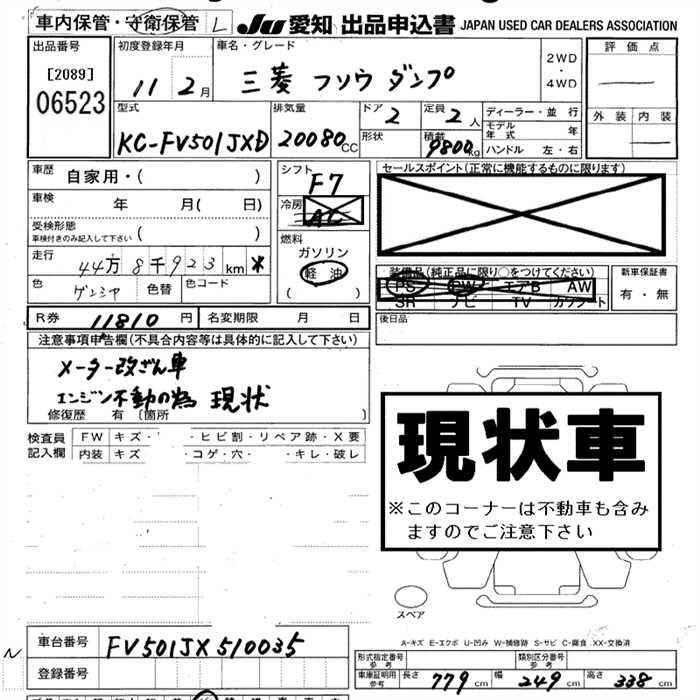 車内保管・守衛保管 L JU 愛知 出品申込書 JAPAN USED CAR DEALERS ASSOCIATION
出品番号 初度登録年月 車名・グレード 評価点
[2089] 11 2月 三菱 フソウ ダンプ 2WD・4WD
06523 外装 内装
型式 排気量 ドア 2 定員 2人 ディーラー・並行
KC-FV501JXD 20080CC 形状 積載 9800kg モデル年式 年
ハンドル 左・右
車歴 自家用・( ) シフト F7 セールスポイント(正常に機能するものに限ります)
車検 年 月( 日) 冷房 AC
受検形態 ( )
車検付きのみ記入して下さい
燃料 ガソリン
走行 44万8千923km * 軽油
( )
装備品(純正品に限り○をつけてください) 新車保証書
PS PW エアB AW 有・無
SR ナビ TV カワシート
色 ゲンシャ 色替 色コード
R券 11810円 名変期限 月 日 後日品
注意事項申告欄(不具合内容等は具体的に記入して下さい)
メーター改ざん車
エンジン不動の為 現状
修復歴 有(箇所 )
現状車
※このコーナーは不動車も含み
ますのでご注意下さい
検査員 FW キズ・ ・ヒビ割・リペア跡・X要
記入欄 内装 キズ ・コゲ・穴・ ・キレ・破レ
スペア
A-キズ E-エクボ U-凹み W-補修跡 S-サビ C-腐食 XX-交換済
N 車台番号 FV501JX510035
登録番号
形式指定番号 参考 類別区分番号 参考
車庫証明用 参考 長さ 779cm 幅 249cm 高さ 338cm